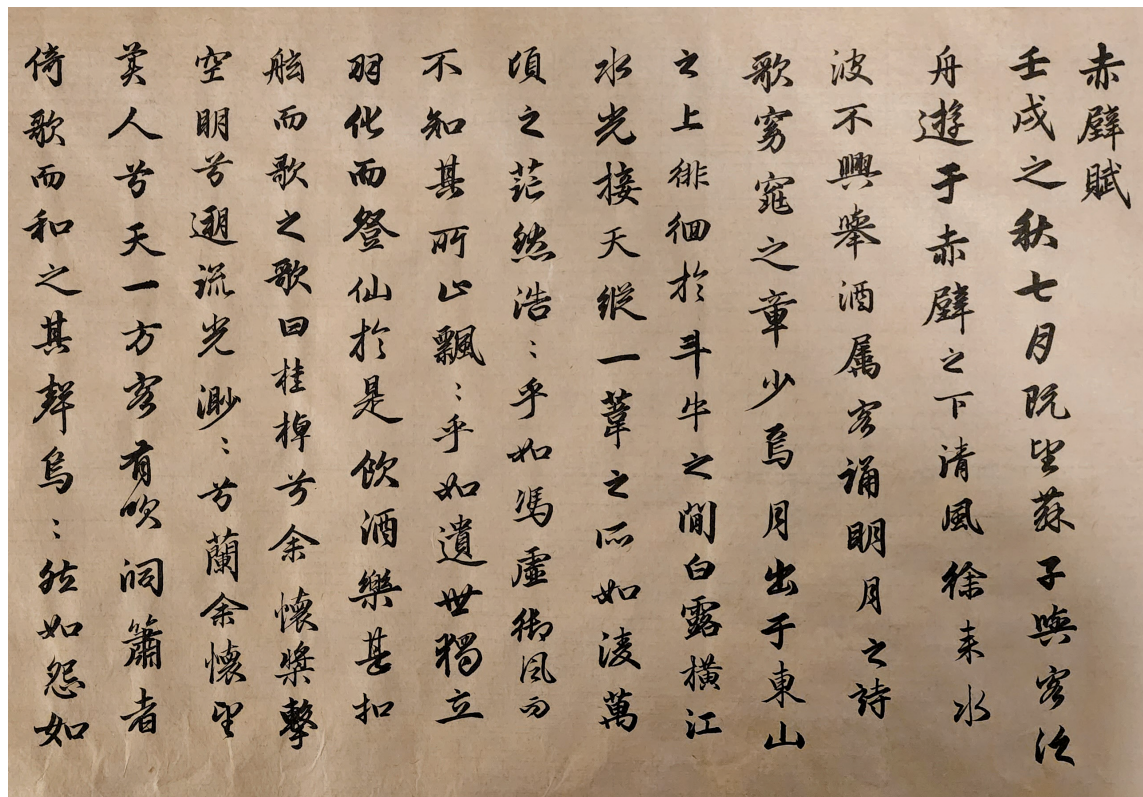 赤壁賦
壬戌之秋七月既望蘇子與客泛
舟遊于赤壁之下清風徐来水
波不興舉酒属客誦明月之詩
歌窈窕之章少焉月出于東山
之上徘徊於斗牛之間白露橫江
水光接天縱一葦之所如淩萬
頃之茫然浩〻乎如馮虛御風而
不知其所止飄〻乎如遺世獨立
羽化而登仙於是飲酒樂甚扣
舷而歌之歌曰桂棹兮余懷槳擊
空明兮遡流光渺〻兮蘭余懷望
美人兮天一方客有吹洞簫者
倚歌而和之其聲烏〻然如怨如